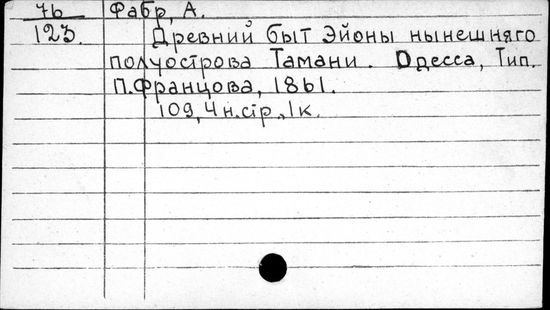 76 Фабр, А.
123. Древний быт Эйоны нынешняго
полуострова Тамани. Одесса, Тип.
П. Францова, 1861.
109, 4 н. стр., 1 к.